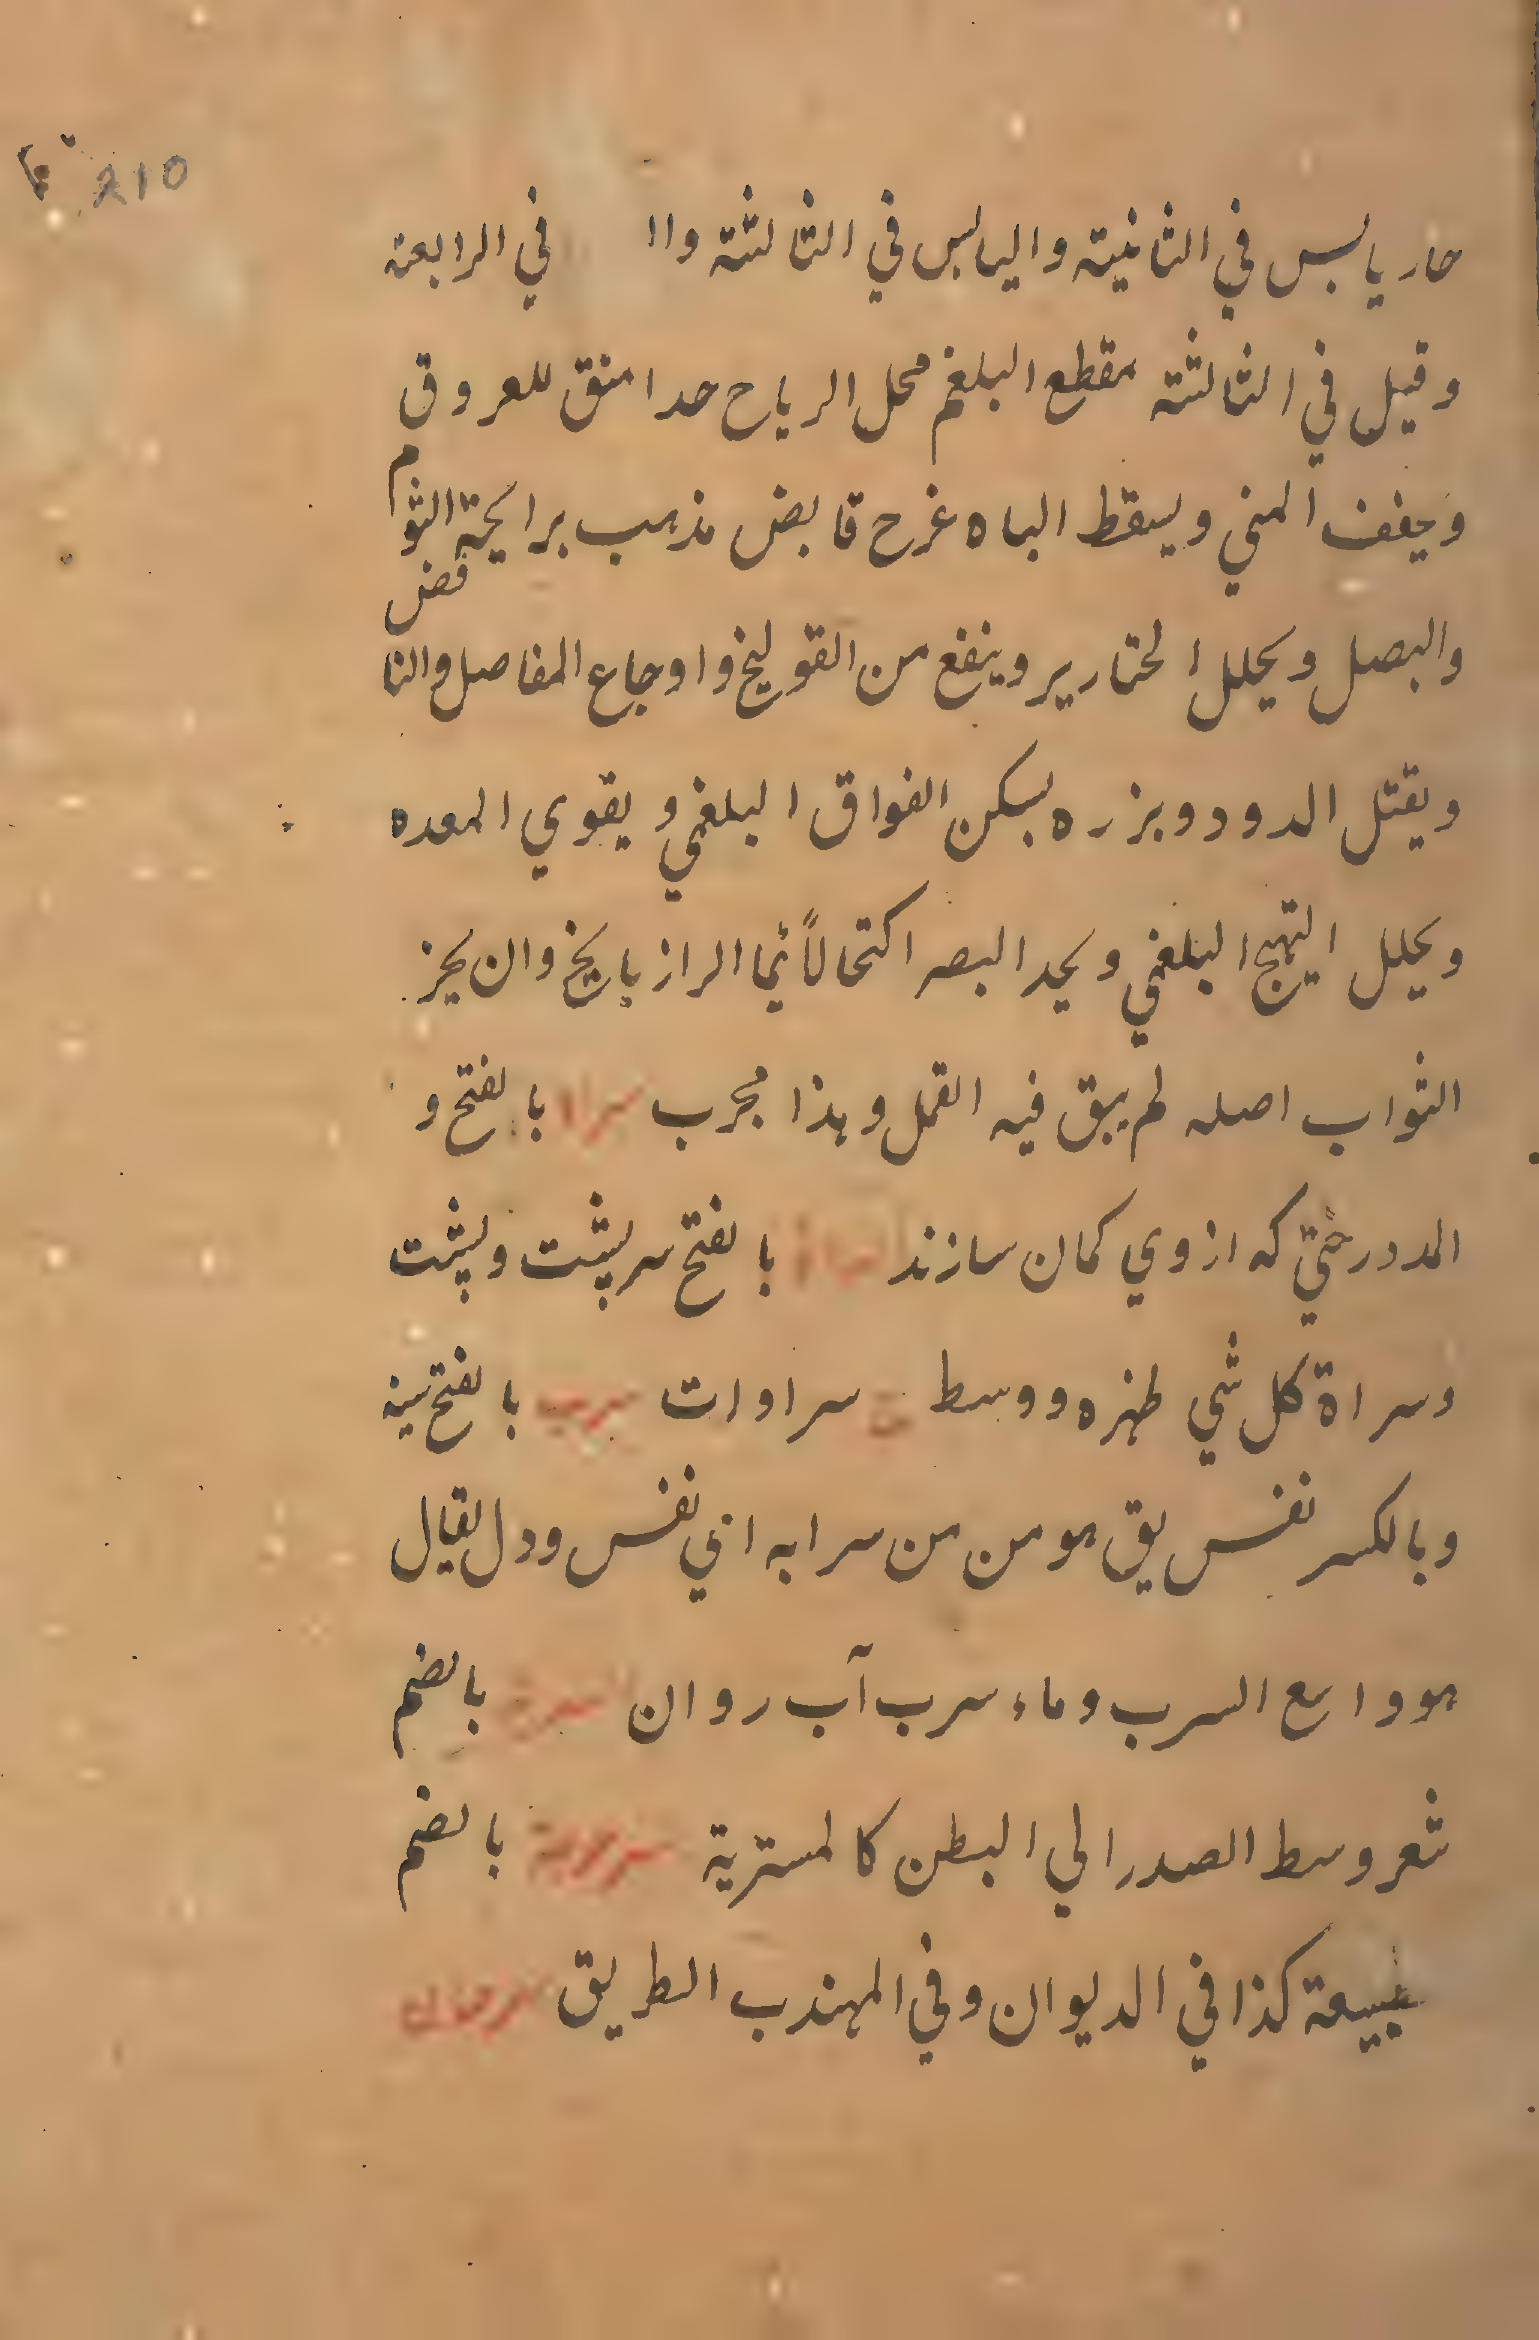 210
حار يابس في الثانية واليابس في الثالثة واا في الرابعة
وقيل في الثالثة مقطع البلغم محل الرياح حدا منق للعروق
ويجفف المني ويسقط الباه غرح قابض مذهب برايحة الثوم
والبصل ويحلل الختازير وينفع من القولنج واوجاع المفاصل والنافض
ويقتل الدود وبزره يسكن الفواق البلغمي ويقوي المعده
ويحلل التهبج البلغمي ويحد البصر اكتحالاً بما الرازيانج وان يخز
الثواب اصله لم يبق فيه القمل وهذا مجرب سرا بالفتح و
المد درختي كه ازوي كمان سازند بالفتح سر پشت وپشت
وسراة كل شي ظهره ووسط ج سراوات سرب بالفتح سينه
وبالكسر نفس يق هو من من سرابه اني نفس ودل يقال
هو واسع السرب وماء سرب آب روان بالضم
شعر وسط الصدر الي البطن كالمسترية بالضم
كذا في الديوان وفي المهذب الطريق